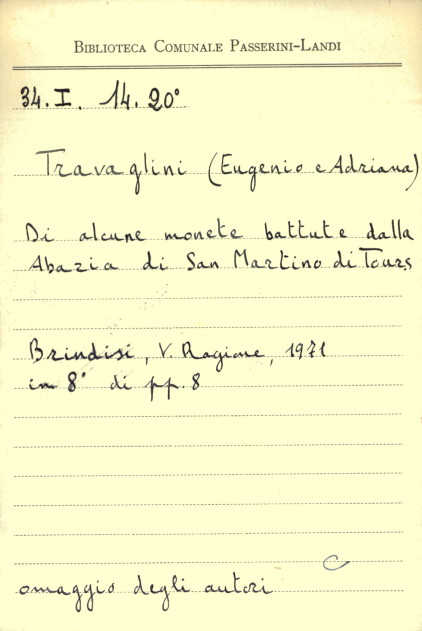 BIBLIOTECA COMUNALE PASSERINI-LANDI
34. I. 14. 20°
Travaglini (Eugenio e Adriana)
Di alcune monete battute dalla
Abazia di San Martino di Tours
Brindisi, V. Ragione, 1971
in 8° di pp. 8
C
omaggio degli autori